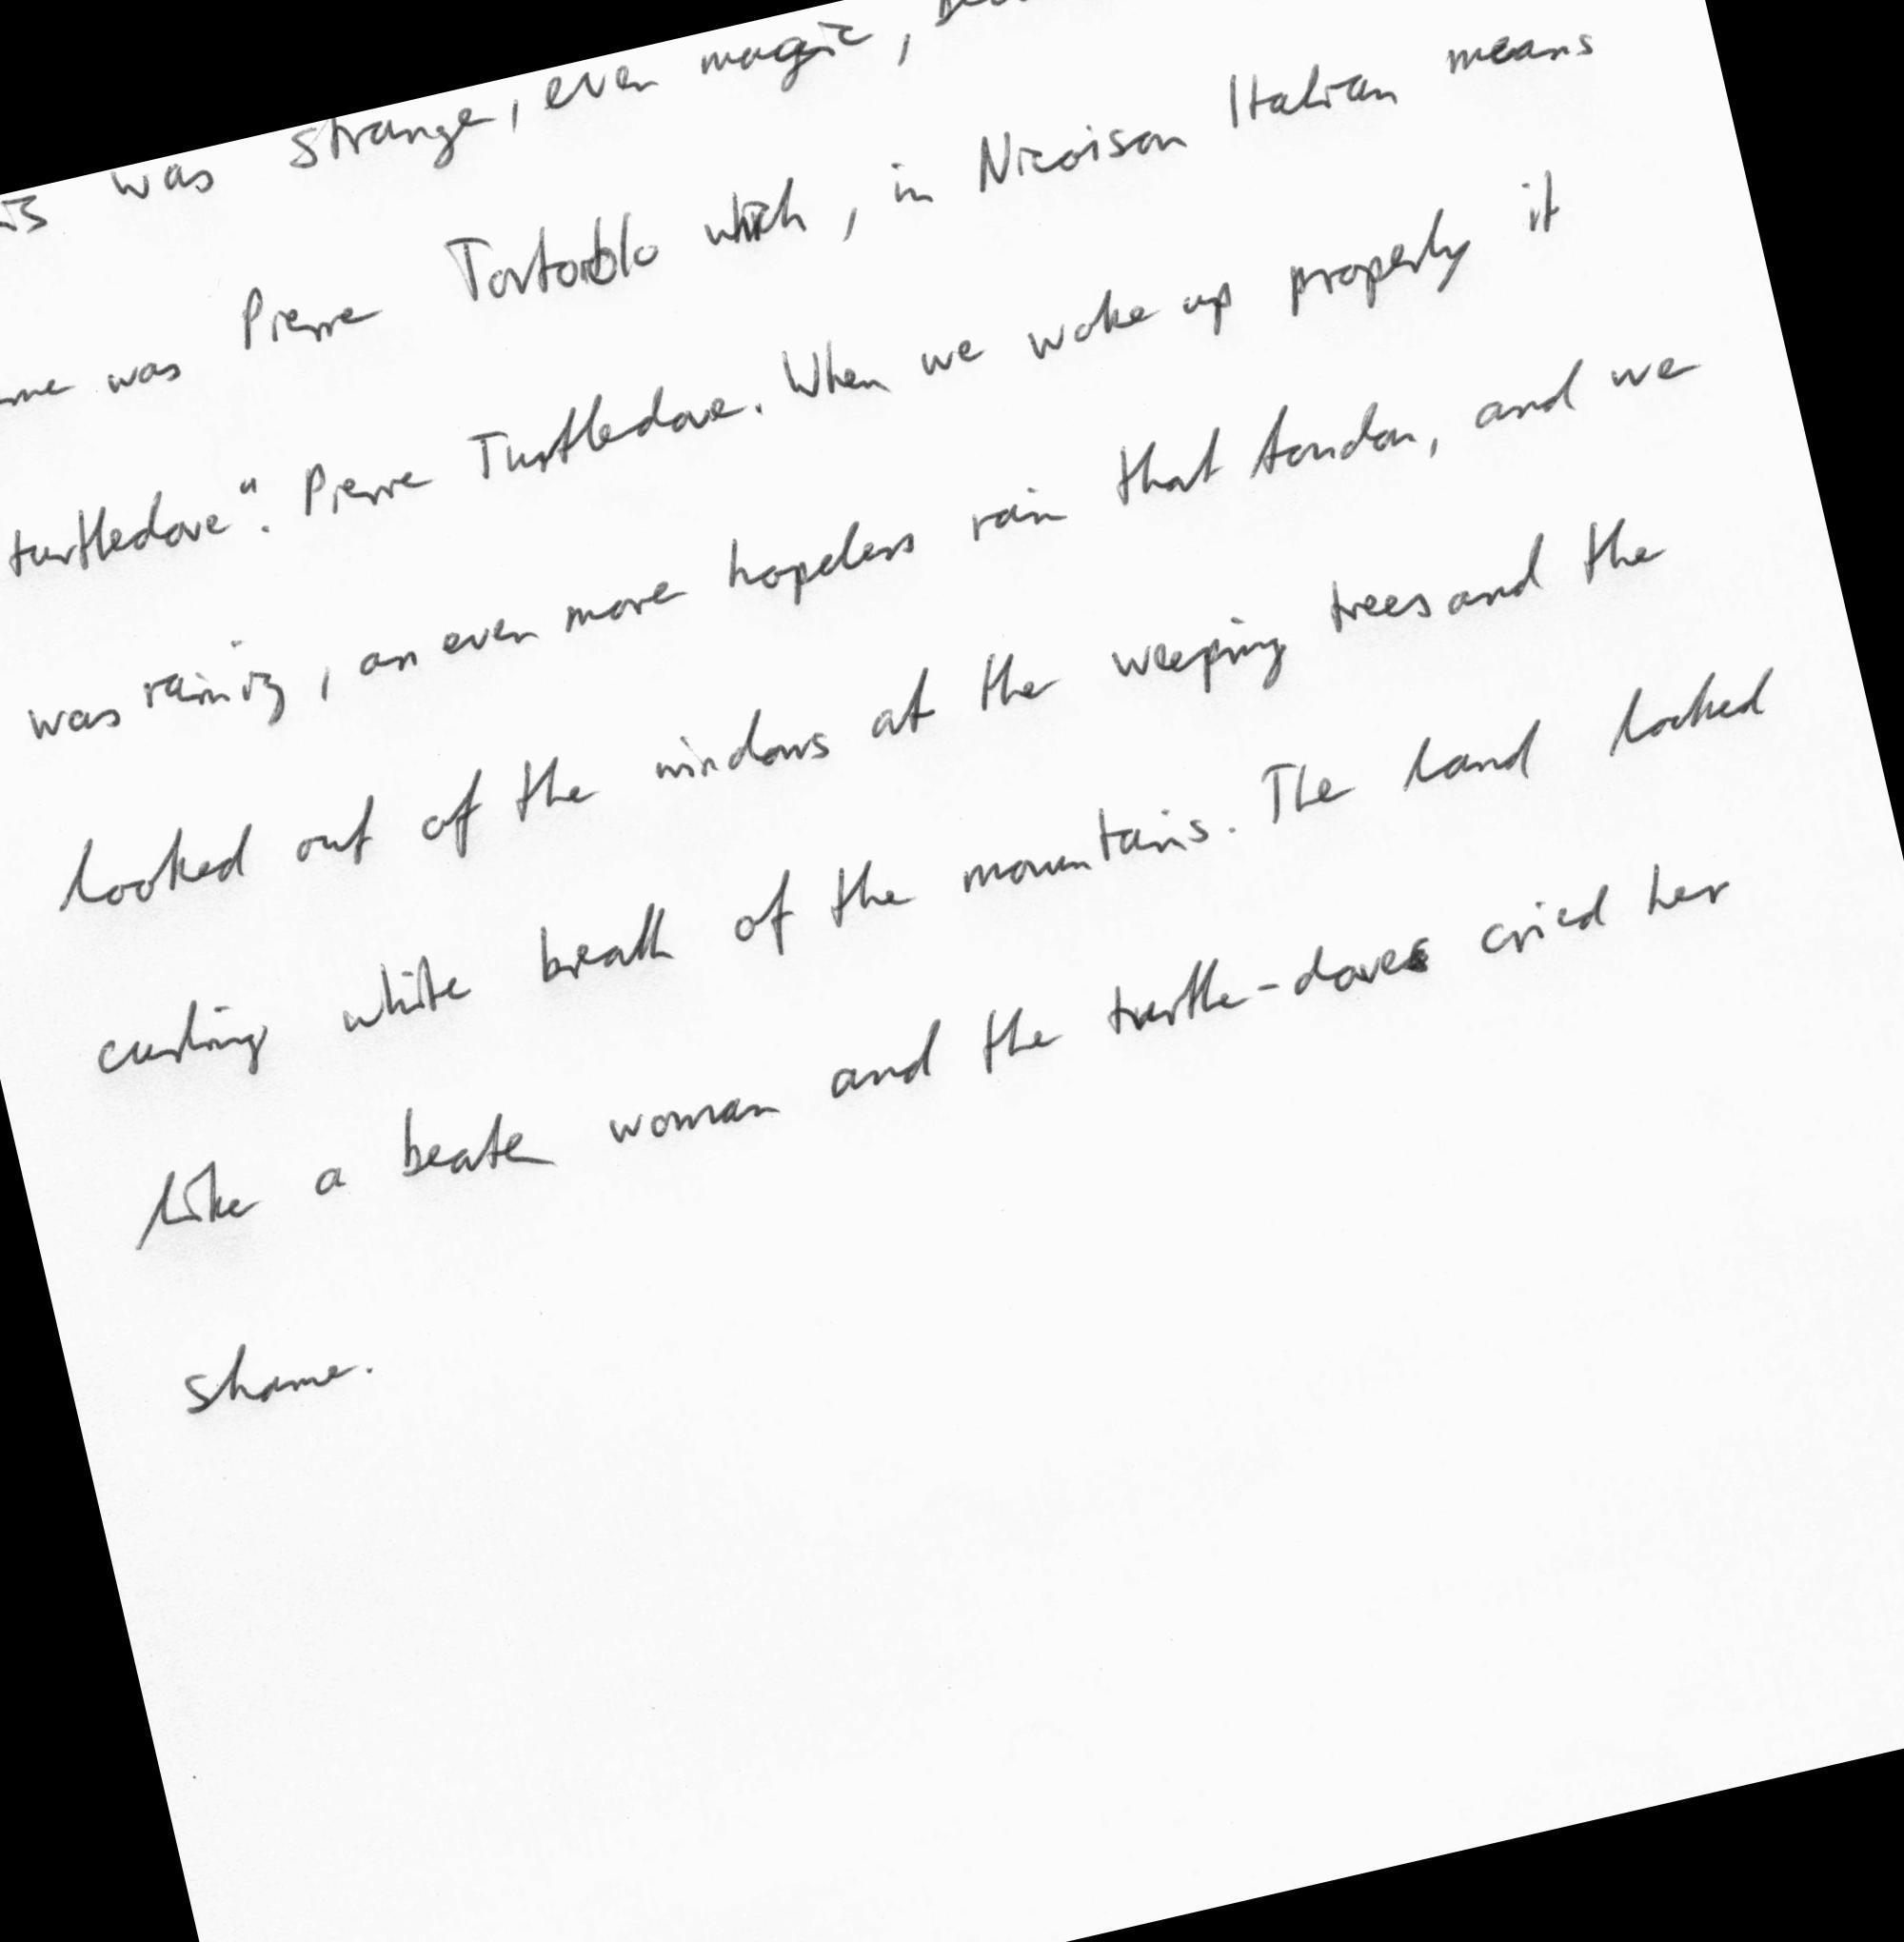 was strange, even magic,
was Pierre which, in Nicoison Italian means
turtledove". Pierre Turtledove. When we woke up properly it
was raining, an even more hopeless rain that London, and we
looked out of the windows at the weeping trees and the
curling white breath of the mountains. The land looked
like a beaten woman and the turtle-doves cried her
shame.